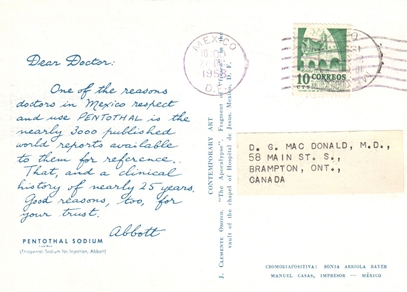 Dear Doctor:
One of the reasons
doctors in Mexico respect
and use PENTOTHAL is the
nearly 3000 published
world reports available
to them for reference..
That, and a clinical
history of nearly 25 years.
Good reasons, too, for
your trust.
Abbott
PENTOTHAL SODIUM
(Thiopental Sodium for Injection, Abbott)
CONTEMPORARY ART
J. Clemente Orozco. "The Apocalypse". Fragment of
vault of the chapel of Hospital de Jesus, Mexico, D. F.
MEXICO
195
D.
10 CORREOS
CTS
D. G. MAC DONALD, M.D.,
58 MAIN ST. S.,
BRAMPTON, ONT.,
CANADA
CROMODIAPOSITIVA: SONIA ARRIOLA BAYER
MANUEL CASAS, IMPRESOR — MÉXICO